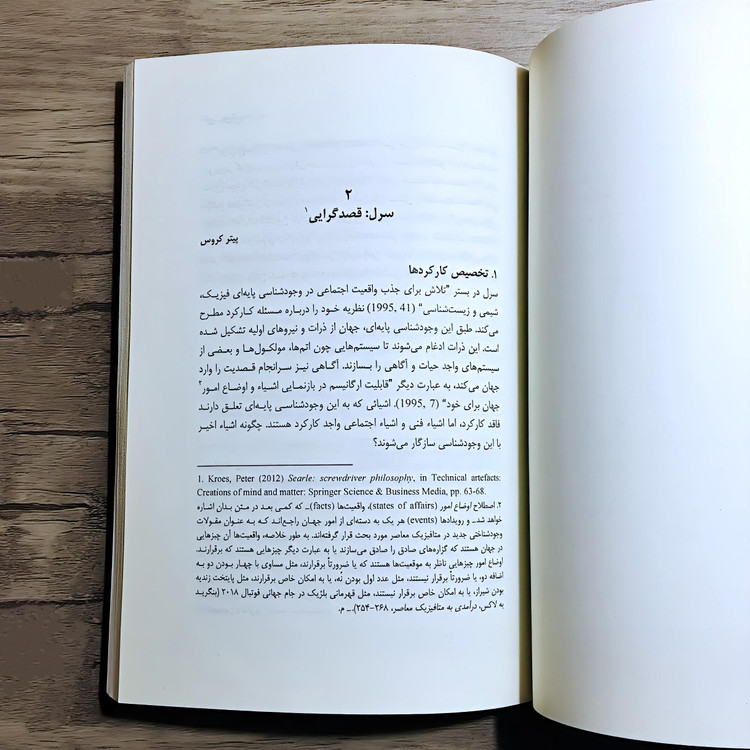 ۲
سرل: قصدگرایی۱
پیتر کروس
۱. تخصیص کارکردها
سرل در بستر "تلاش برای جذب واقعیت اجتماعی در وجودشناسی پایه‌ای فیزیک،
شیمی و زیست‌شناسی" (41 ,1995) نظریه خود را درباره مسئله کارکرد مطرح
می‌کند. طبق این وجودشناسی پایه‌ای، جهان از ذرات و نیروهای اولیه تشکیل شده
است. این ذرات ادغام می‌شوند تا سیستم‌هایی چون اتم‌ها، مولکول‌ها و بعضی از
سیستم‌های واجد حیات و آگاهی را بسازند. آگاهی نیز سرانجام قصدیت را وارد
جهان می‌کند، به عبارت دیگر "قابلیت ارگانیسم در بازنمایی اشیاء و اوضاع امور۲
جهان برای خود" (7 ,1995). اشیائی که به این وجودشناسی پایه‌ای تعلق دارند
فاقد کارکرد، اما اشیاء فنی و اشیاء اجتماعی واجد کارکرد هستند. چگونه اشیاء اخیر
با این وجودشناسی سازگار می‌شوند؟
1. Kroes, Peter (2012) Searle: screwdriver philosophy, in Technical artefacts:
Creations of mind and matter: Springer Science & Business Media, pp. 63-68.
۲. اصطلاح اوضاع امور (states of affairs)، واقعیت‌ها (facts)ـ که کمی بعد در متن بدان اشاره
خواهد شدـ و رویدادها (events) هر یک به دسته‌ای از امور جهان راجع‌اند که به عنوان مقولات
وجودشناختی جدید در متافیزیک معاصر مورد بحث قرار گرفته‌اند. به طور خلاصه، واقعیت‌ها آن چیزهایی
در جهان هستند که گزاره‌های صادق را صادق می‌سازند یا به عبارت دیگر چیزهایی هستند که برقرارند.
اوضاع امور چیزهایی ناظر به موقعیت‌ها هستند که یا ضرورتاً برقرارند، مثل مساوی با چهار بودن دو به
اضافه دو، یا ضرورتاً برقرار نیستند، مثل عدد اول بودن نُه، یا به امکان خاص برقرارند، مثل پایتخت زندیه
بودن شیراز، یا به امکان خاص برقرار نیستند، مثل قهرمانی بلژیک در جام جهانی فوتبال ۲۰۱۸ (بنگرید
به لاکس، درآمدی به متافیزیک معاصر، ۲۶۸-۲۵۴).ـ م.